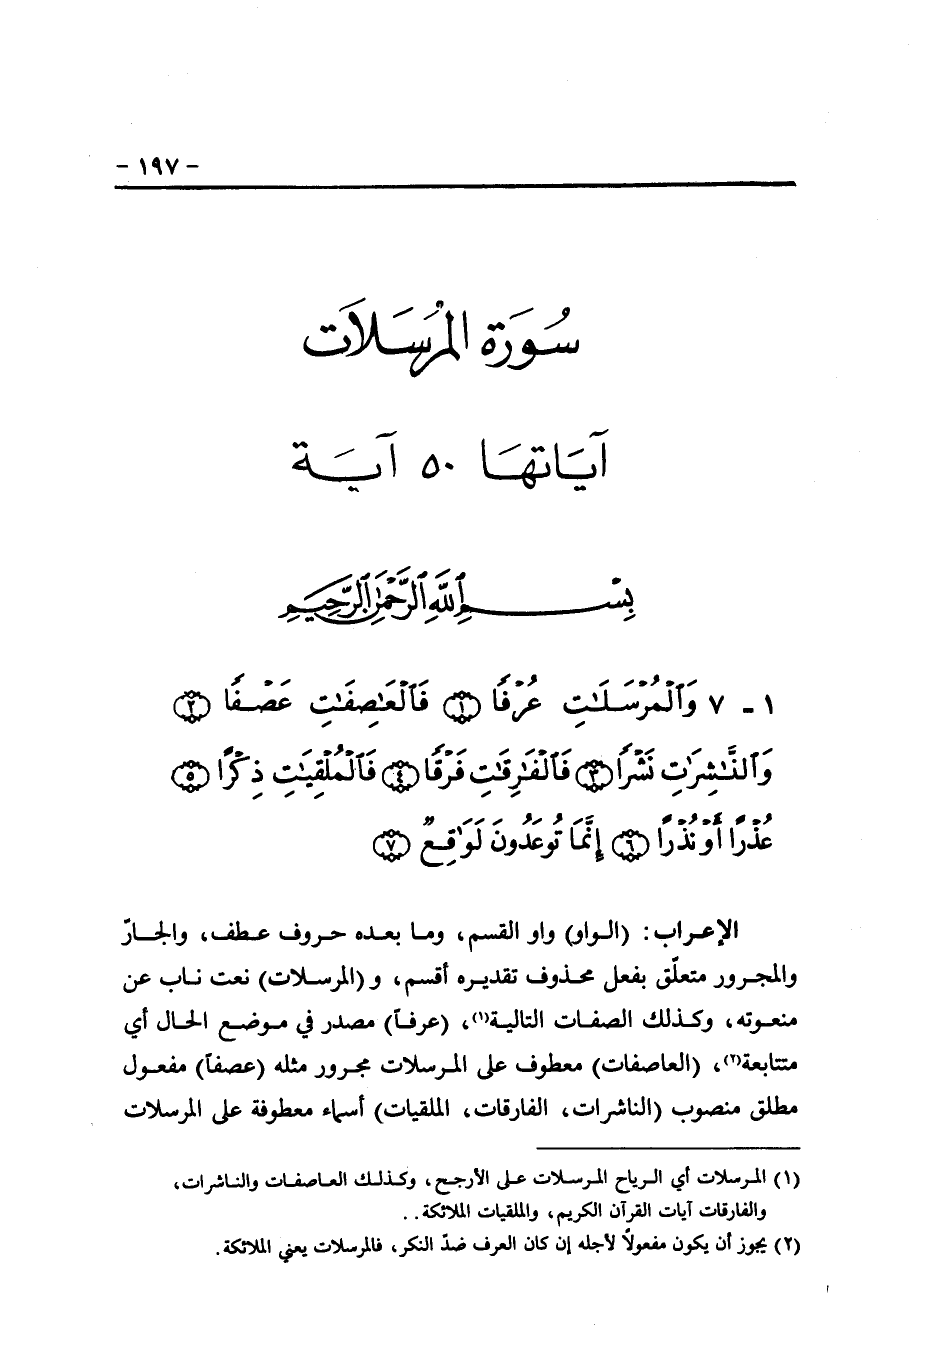 - ١٩٧ -
سُورَة المُرسَلَات
آيَاتهَا ٥٠ آيَة
بِسْمِ ٱللَّهِ ٱلرَّحْمَٰنِ ٱلرَّحِيمِ
١ - ٧ وَٱلْمُرْسَلَٰتِ عُرْفًا ﴿١﴾ فَٱلْعَٰصِفَٰتِ عَصْفًا ﴿٢﴾
وَٱلنَّٰشِرَٰتِ نَشْرًا ﴿٣﴾ فَٱلْفَٰرِقَٰتِ فَرْقًا ﴿٤﴾ فَٱلْمُلْقِيَٰتِ ذِكْرًا ﴿٥﴾
عُذْرًا أَوْ نُذْرًا ﴿٦﴾ إِنَّمَا تُوعَدُونَ لَوَٰقِعٌ ﴿٧﴾
الإعراب: (الواو) واو القسم، وما بعده حروف عطف، والجارّ
والمجرور متعلّق بفعل محذوف تقديره أقسم، و (المرسلات) نعت ناب عن
منعوته، وكذلك الصفات التالية(١)، (عرفاً) مصدر في موضع الحال أي
متتابعة(٢)، (العاصفات) معطوف على المرسلات مجرور مثله (عصفاً) مفعول
مطلق منصوب (الناشرات، الفارقات، الملقيات) أسماء معطوفة على المرسلات
(١) المرسلات أي الرياح المرسلات على الأرجح، وكذلك العاصفات والناشرات،
والفارقات آيات القرآن الكريم، والملقيات الملائكة..
(٢) يجوز أن يكون مفعولاً لأجله إن كان العرف ضدّ النكر، فالمرسلات يعني الملائكة.